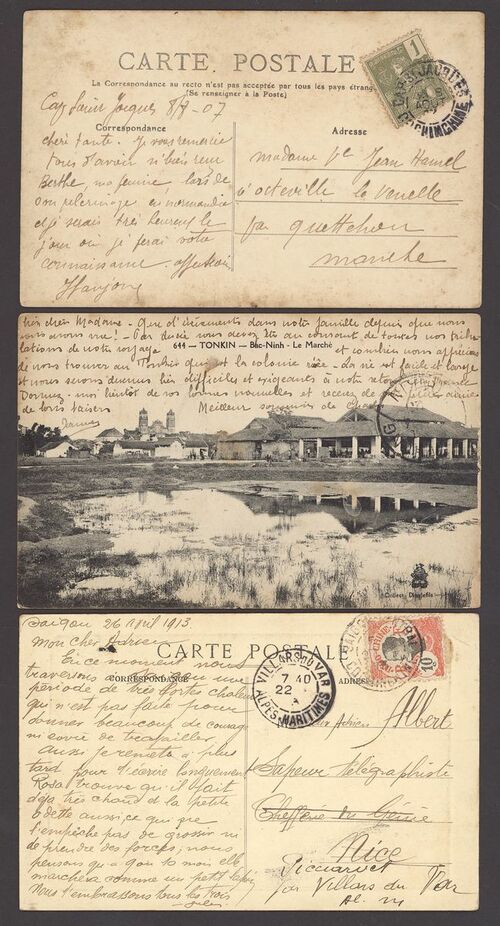 CARTE POSTALE
La Correspondance au recto n'est pas acceptée par tous les pays étrang
(Se renseigner à la Poste)
1
CAP St JACQUES
COCHINCHINE
Cap Saint Jacques 8/8-07
Correspondance
Adresse
chère tante. Je vous remercie
tous d'avoir si bien reçu
Berthe, ma femme, lors de
son pèlerinage en normandie
et je serais très heureux le
jour où je ferai votre
connaissance. affection
madame Ve Jean Hamel
à octeville la Venelle
par quettehou
manche
bien chère Madame - Que d'événements dans notre famille depuis que nous
nous avons vue! -
644 - TONKIN - Bac-Ninh - Le Marché
lations de notre voyage et combien nous apprécions
de nous trouver au Tonkin qui est la colonie rêvée - la vie est facile et large
et nous serons devenus très difficiles et exigeants à notre retour en France
Donnez-moi bientôt de vos bonnes nouvelles et recevez de
de bons baisers Meilleur souvenir de
Collect. Dieulefils
Saigon 26 avril 1913
Mon cher Adrien
CARTE POSTALE
CORRESPONDANCE
ADRESSE
VILLARS DU VAR
7 40
22
4
ALPES MARITIMES
10
En ce moment nous
traversons une
période de très fortes chaleurs
qui n'est pas faite pour
donner beaucoup de courage
ni envie de travailler
aussi je remets à plus
tard pour t'écrire longuement
Rosa trouve qu'il fait
déjà très chaud la petite
odette aussi ce qui ne
l'empêche pas de grossir ni
de prendre des forces; nous
pensons qu'à 9 ou 10 mois elle
marchera comme un petit lapin
Nous t'embrassons tous les trois
Jules
Adrien Albert
Sapeur télégraphiste
Chefferie du Génie
Nice
par Villars du Var
Al. M